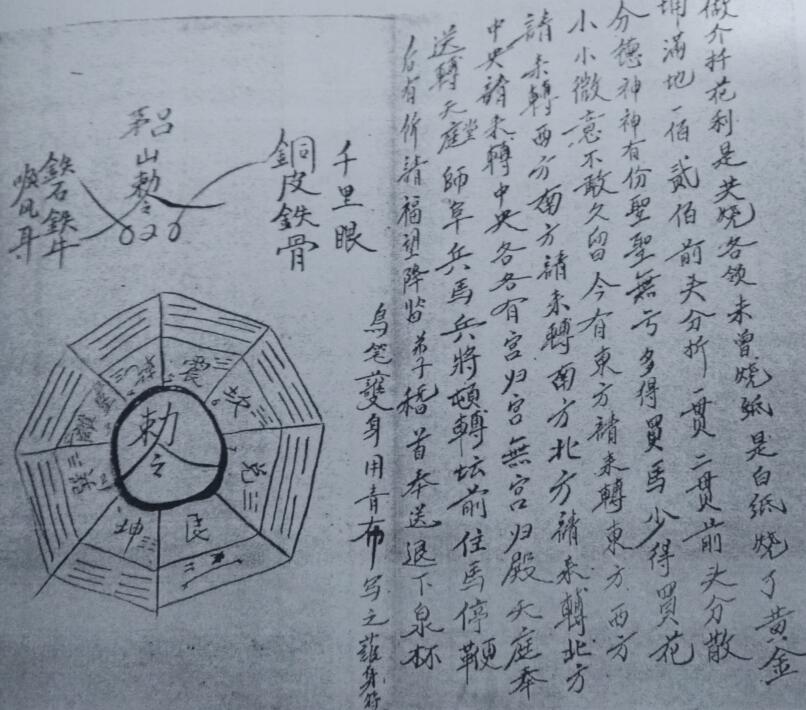 做介扦花利是共烧各领未曾烧纸是白纸烧了黄金
满地一佰贰佰前头分折一贯二贯前头分散
分德神神有份聖聖無亏多得買馬少得買花
小小微意不敢久留今有東方請来轉東方西方
請来轉西方南方請来轉南方北方請来轉北方
中央請来轉中央各各有宮归宮無宮归殿天庭奉
送轉天庭堂師阜兵馬兵將頓轉坛前住馬停鞭
后有所請福望降监弟子稽首奉送退下泉杯
烏笔護身用青布写之護身符
千里眼
銅皮鉄骨
山勅令
鉄石鉄牛
順风耳
勅令
震
坎
兑
艮
坤